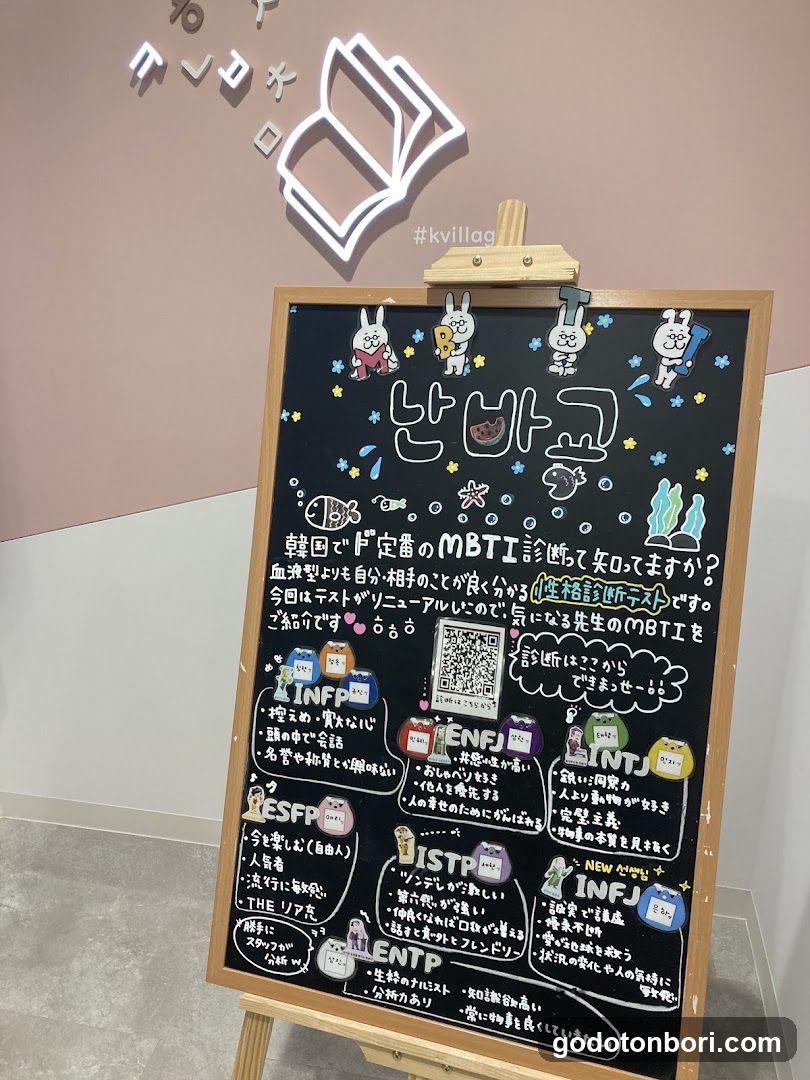 #kvillag
M
B
T
I
난바교
韓国でド定番のMBTI診断って知ってますか?
血液型よりも自分・相手のことが良く分かる性格診断テストです。
今回はテストがリニューアルしたので、気になる先生のMBTIを
ご紹介です ㅎㅎㅎ
診断はここから
できまっせー!!
診断はこちらから
INFP
・控えめ・寛大な心
・頭の中で会話
・名誉や称賛とか興味ない
ENFJ
・共感性が高い
・おしゃべり好き
・他人を優先する
・人の幸せのためにがんばれる
INTJ
・鋭い洞察力
・人より動物が好き
・完璧主義
・物事の本質を見ぬく
ESFP
・今を楽しむ(自由人)
・人気者
・流行に敏感
・THE リア充
ISTP
・ツンデレが激しい
・第六感が強い
・仲良くなれば口数が増える
・話すと意外とフレンドリー
NEW 선생님
INFJ
은하
・誠実で謙虚
・優柔不断
・愛が地球を救う
・状況の変化や人の気持に
敏感
勝手に
スタッフが
分析w
ENTP
・生粋のナルシスト
・分析力あり
・知識欲高い
・常に物事を良くしてい
godotonbori.com